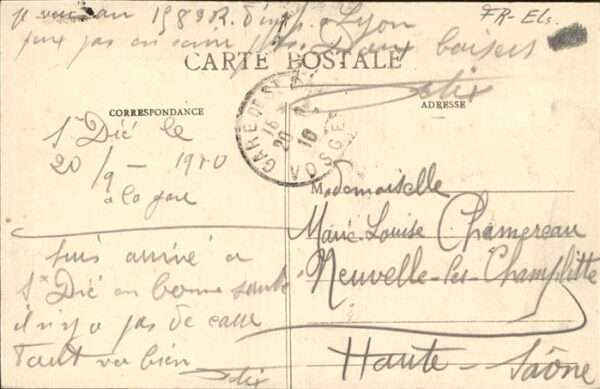 je suis au 158e R. d'inf. Lyon
FR-Els.
pas Doux baisers
Félix
CARTE POSTALE
CORRESPONDANCE
ADRESSE
GARE DE ST
16
20 9
10
VOSGES
St Dié le
20/9 - 1910
a la gare
suis arrivé a
St Dié en bonne santé
il n'y a pas de casse
tout va bien
Félix
Mademoiselle
Marie-Louise Chamereau
Neuvelle-les-Champlitte
Haute-Saône